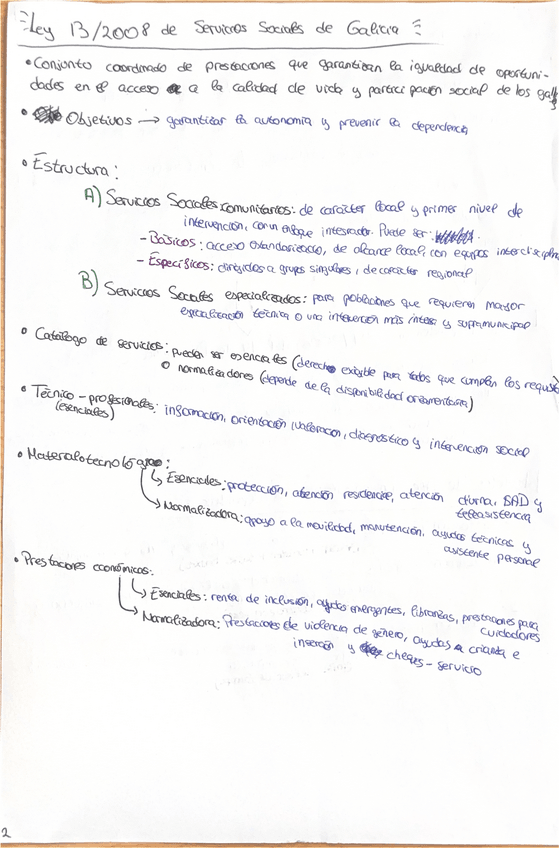 Ley 13/2008 de Servicios Sociales de Galicia
• Conjunto coordinado de prestaciones que garantizan la igualdad de oportuni-
dades en el acceso a la calidad de vida y participación social de los gall
• Objetivos → garantizar la autonomía y prevenir la dependencia
• Estructura:
A) Servicios Sociales comunitarios: de carácter local y primer nivel de
intervención, con un enfoque integrador. Puede ser:
- Básicos: acceso estandarizado, de alcance local, con equipos interdisciplina
- Específicos: dirigidos a grupos singulares, de carácter regional
B) Servicios Sociales especializados: para poblaciones que requieren mayor
especialización técnica o una intervención más intensa y supramunicipal
• Catálogo de servicios: pueden ser esenciales (derecho exigible para todos que cumplan los requisitos
o normalizadores (depende de la disponibilidad orzamentaria)
• Técnico-profesionales: información, orientación, valoración, diagnóstico y intervención social
(esenciales)
• Materialotecnológico:
↳ Esenciales: protección, atención residencial, atención diurna, SAD y
teleasistencia
↳ Normalizadora: apoyo a la movilidad, manutención, ayudas técnicas y
asistente personal
• Prestaciones económicas:
↳ Esenciales: renta de inclusión, ayudas emergentes, libranzas, prestaciones para
cuidadores
↳ Normalizadora: Prestaciones de violencia de género, ayudas a crianza e
inserción y cheques-servicio
2